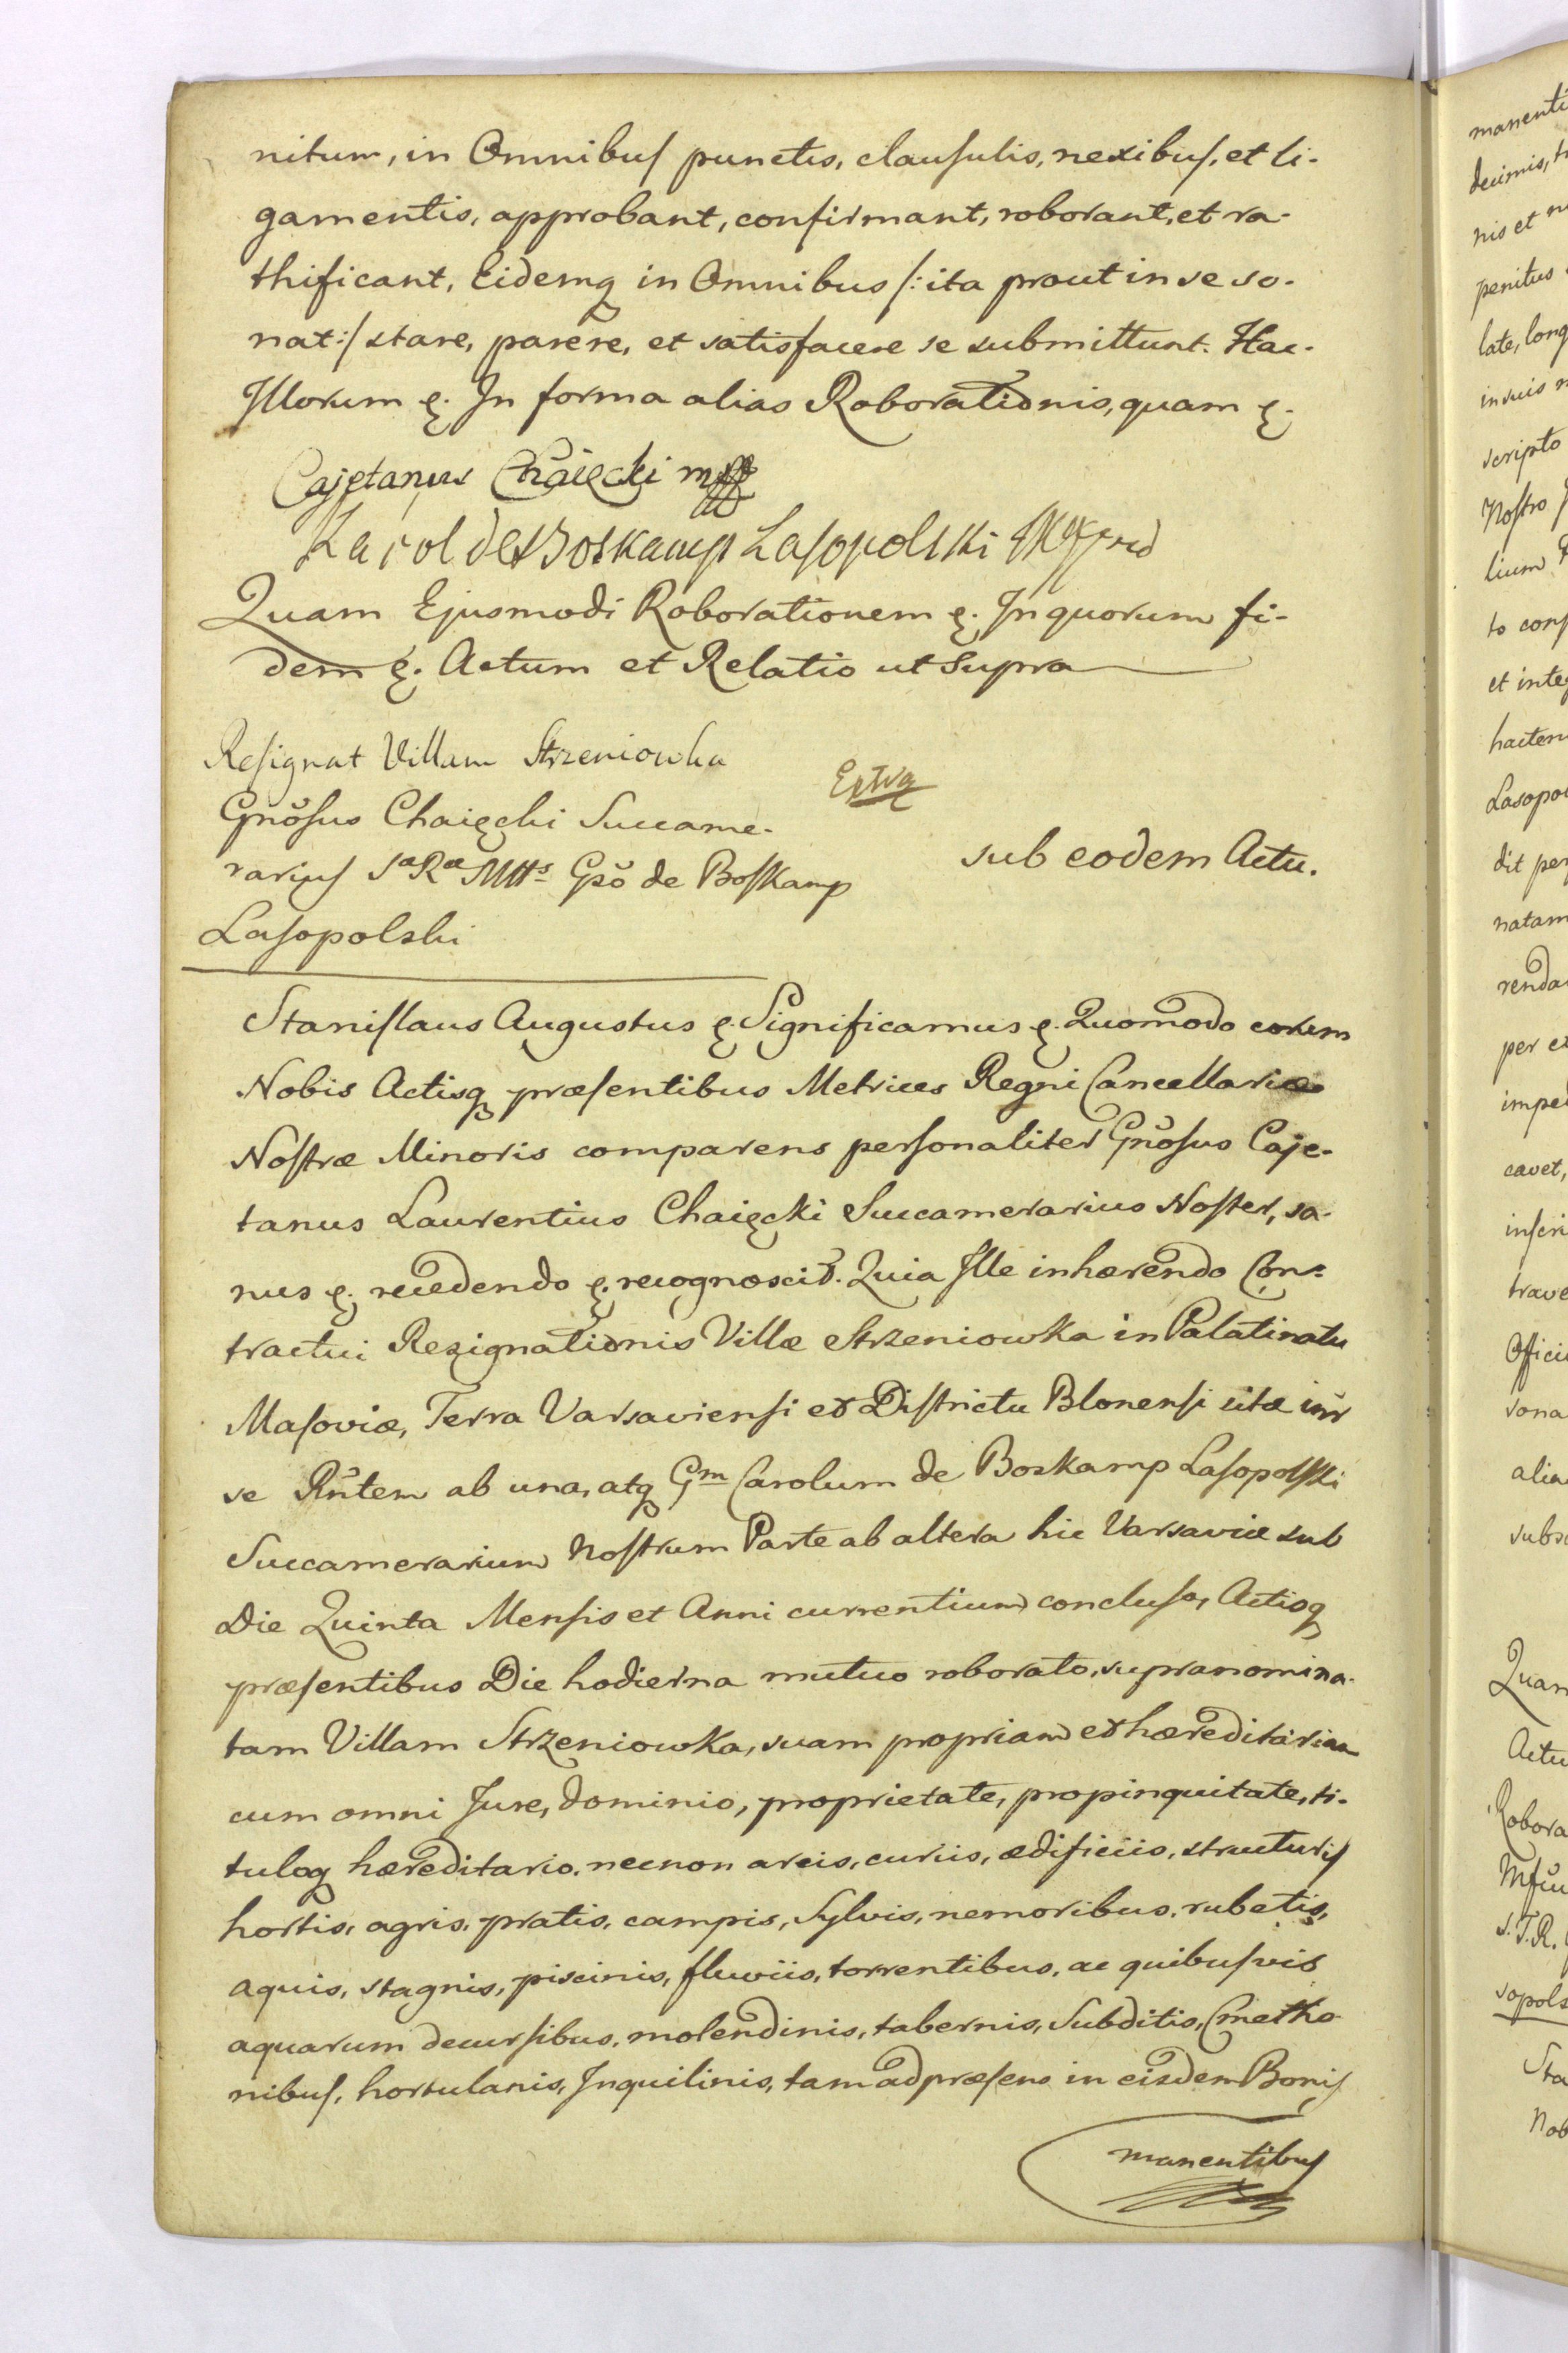 nitum, in Omnibus punctis, clausulis, nexibus, et li-
gamentis, approbant, confirmant, roborant, et ra-
thificant, Eidemq in Omnibus /: ita prout in se so-
nat :/ stare, parere, et satisfacere se submittunt. Hac-
Illorum &. In forma alias Roborationis, quam &.
Cajetanus Chaięcki mpp
Karol de Boskamp Lasopolski
Quam Ejusmodi Roborationem &. In quorum fi-
dem &. Actum et Relatio ut Supra
Resignat Villam Strzeniowka
Gnõsus Chaięcki Succame-
rarius Sa Ra Mtts Gsõ de Boskamp
Lasopolski
Extra
sub eodem Actu.
Stanislaus Augustus &. Significamus &. Quomodo coram
Nobis Actisq præsentibus Metrices Regni Cancellariæ
Nostræ Minoris comparens personaliter Gnõsus Caje-
tanus Laurentius Chaięcki Succamerarius Noster, sa-
nus &. recedendo &. recognoscit. Quia Ille inhærendo Con-
tractui Rezignationis Villæ Strzeniowka in Palatinatu
Masoviæ, Terra Varsaviensi et Districtu Blonensi sitæ inr̃
se Rñtem ab una, atq Gm Carolum de Boskamp Lasopolski
Succamerarium Nostrum Parte ab altera hic Varsaviæ sub
Die Quinta Mensis et Anni currentium concluso, Actisq
præsentibus Die hodierna mutuo roborato, supranomina-
tam Villam Strzeniowka, suam propriam et hæreditariam
cum omni Jure, dominio, proprietate, propinquitate, ti-
tuloq hæreditario, necnon areis, curiis, ædificiis, structuris
hortis, agris, pratis, campis, Sylvis, nemoribus, rubetis,
aquis, stagnis, piscinis, fluviis, torrentibus, ac quibusvis
aquarum decursibus, molendinis, tabernis, Subditis, Cmetho
nibus, hortulanis, Inquilinis, tam ad præsens in eisdem Bonis
manentibus
manenti
decimis,
nis et
penitus
late, long
in suis
scripto
Nostro
lium
to
et inte
hacten
Lasopol
dit per
natam
renda
per
impe
cavet,
inscri
trave
Offici
sona
alia
subs
Quam
Actu
Robora
S. T. R.
sopols
Sta
Nob